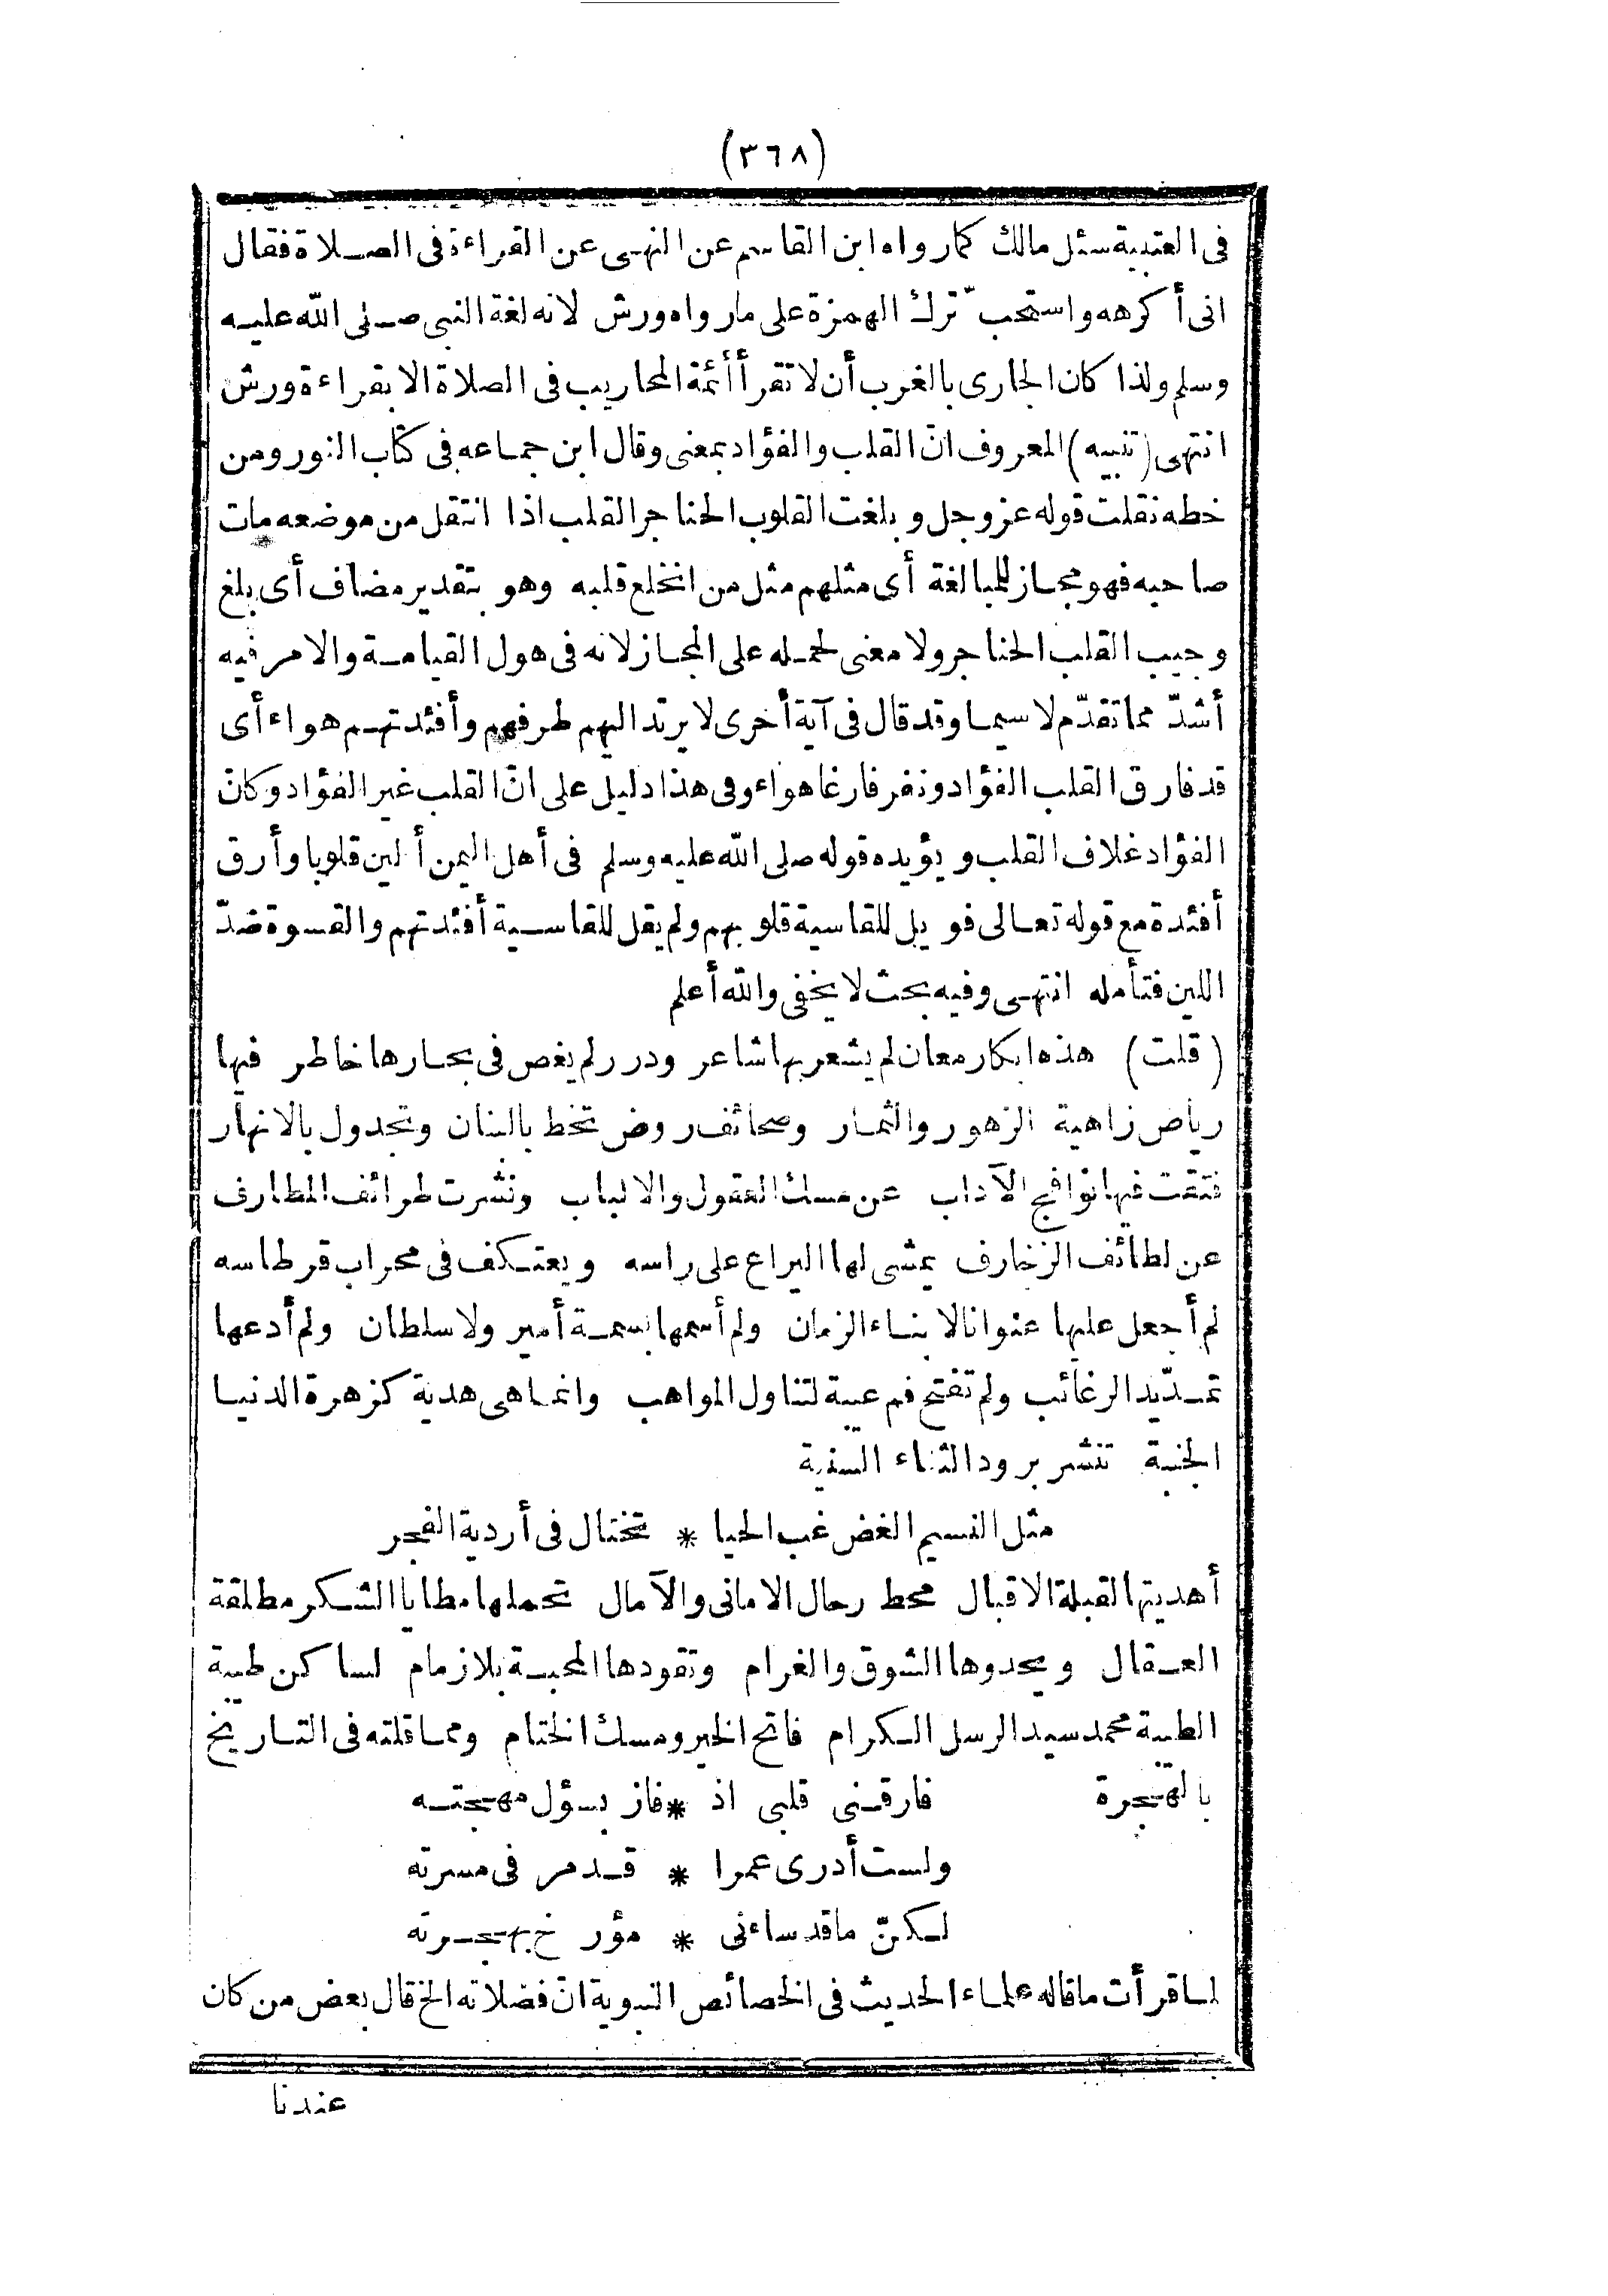 (٣٦٨)
فى العتبية سئل مالك كما رواه ابن القاسم عن النهى عن القراءة فى الصلاة فقال
انى أكرهه واستحب ترك الهمزة على مارواه ورش لانه لغة النبى صلى الله عليه
وسلم ولذا كان الجارى بالغرب أن لا تقرأ أئمة المحاريب فى الصلاة الا بقراءة ورش
انتهى (تنبيه) المعروف انّ القلب والفؤاد بمعنى وقال ابن جماعه فى كتاب النور ومن
خطه نقلت قوله عز وجل وبلغت القلوب الحناجر القلب اذا انتقل من موضعه مات
صاحبه فهو مجاز للمبالغة أى مثلهم مثل من انخلع قلبه وهو بتقدير مضاف أى بلغ
وجيب القلب الحناجر ولا معنى لحمله على المجاز لانه فى هول القيامة والامر فيه
أشدّ مما تقدّم لا سيما وقد قال فى آية أخرى لا يرتد اليهم طرفهم وأفئدتهم هواء أى
قد فارق القلب الفؤاد ونفر فارغا هواء وفى هذا دليل على انّ القلب غير الفؤاد وكان
الفؤاد غلاف القلب ويؤيده قوله صلى الله عليه وسلم فى أهل اليمن ألين قلوبا وأرق
أفئدة مع قوله تعالى فويل للقاسية قلوبهم ولم يقل للقاسية أفئدتهم والقسوة ضدّ
اللين فتأمله انتهى وفيه بحث لا يخفى والله أعلم
(قلت) هذه ابكار معان لم يشعر بها شاعر ودرر لم يغص فى بحارها خاطر فيها
رياض زاهية الزهور والثمار وصحائف روض تخط بالبنان وتجدول بالانهار
فتقت فيها نوافج الآداب عن مسك العقول والالباب ونشرت طرائف المطارف
عن لطائف الزخارف يمشى لها اليراع على راسه ويعتكف فى محراب قرطاسه
لم أجعل عليها عنوانا لابناء الزمان ولم أسمها بسمة أمير ولا سلطان ولم أدعها
تمد يد الرغائب ولم تفتح فم عيبة لتناول المواهب وانما هى هدية كزهرة الدنيا
الجنية تنشر برود الثناء السنية
مثل النسيم الغض غب الحيا * تختال فى أردية الفجر
أهديتها لقبلة الاقبال محط رحال الامانى والآمال تحملها مطايا الشكر مطلقة
العقال ويحدوها الشوق والغرام وتقودها المحبة بلا زمام لساكن طيبة
الطيبة محمد سيد الرسل الكرام فاتح الخير ومسك الختام ومما قلته فى التاريخ
بالهجرة فارقنى قلبى اذ * فاز بسؤل مهجته
ولست أدرى عمرا * قد مر فى مسرته
لكنّ ما قد ساءنى * مؤرخ بهجرته
لما قرأت ما قاله علماء الحديث فى الخصائص النبوية انّ فضلاته الخ قال بعض من كان
عندنا